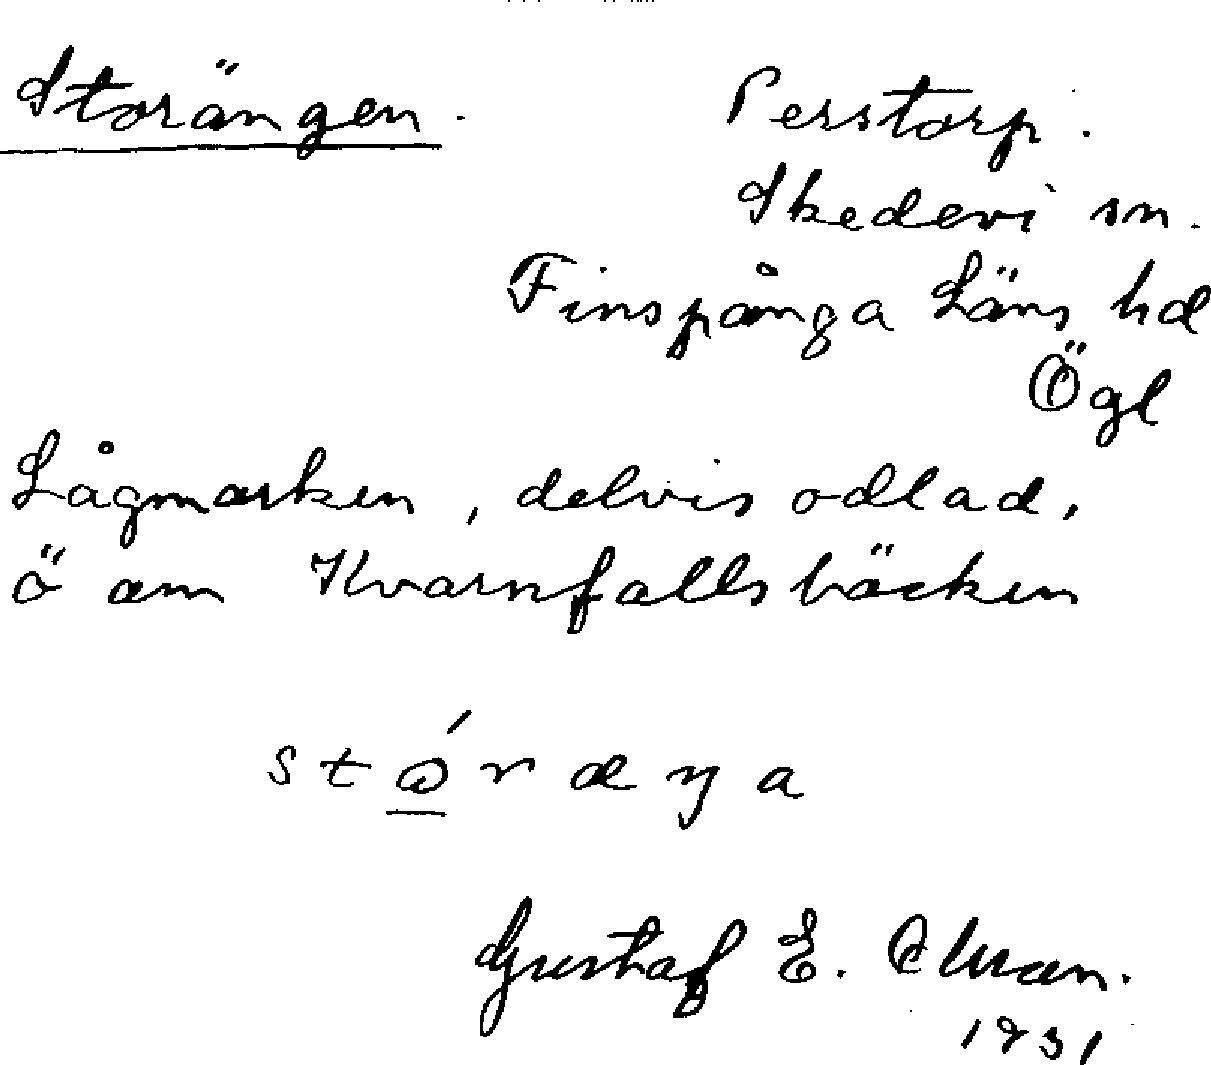 Storängen.
Perstorp.
Skedevi sn.
Finspånga Läns hd
Ögl
Lågmarken, delvis odlad,
ö om Kvarnfallsbäcken
Gustaf E.
1931